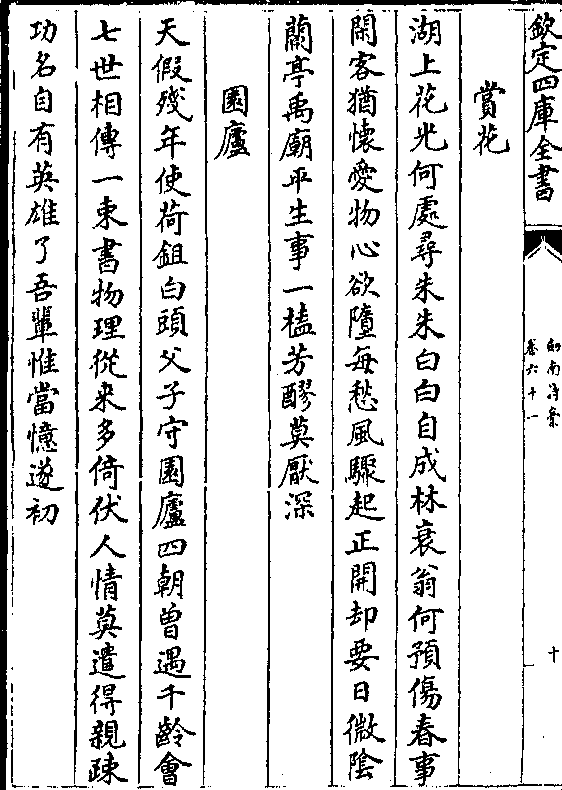 欽定四庫全書
劍南詩槀
卷六十一
十
賞花
湖上花光何處尋朱朱白白自成林衰翁何預傷春事
閑客猶懷愛物心欲墮每愁風驟起正開却要日微陰
蘭亭禹廟平生事一榼芳醪莫厭深
園廬
天假殘年使荷鉏白頭父子守園廬四朝曾遇千齡會
七世相傳一束書物理從来多倚伏人情莫遣得親疎
功名自有英雄了吾輩惟當憶遂初